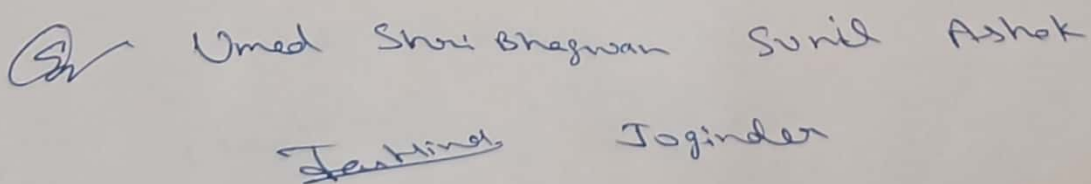 Umed Shri Bhagwan Sunil Ashok
JaiHind Joginder